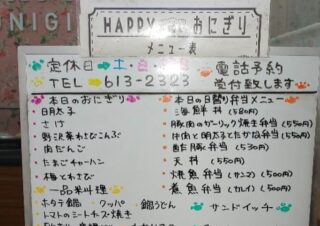 NIGI
HAPPY おにぎり
メニュー表
定休日→土・日・
電話予約
受付致します
TEL 613-2323
本日のおにぎり
明太子
さけ
野沢菜わさびこんぶ
肉だんご
たまごチャーハン
本日の日替り弁当メニュー
海鮮丼 (580円)
豚肉のガーリック焼き弁当 (500円)
牛肉と明太子とたかな弁当 (550円)
豚丼 (530円)
天丼 (550円)
大焼魚弁当 (サンマ) (500円)
煮魚弁当 (カレイ) (500円)
一品米料理
ホタテ鍋
クッパ
鍋うどん
トマトのシートチーズ焼き
サンドイッチ